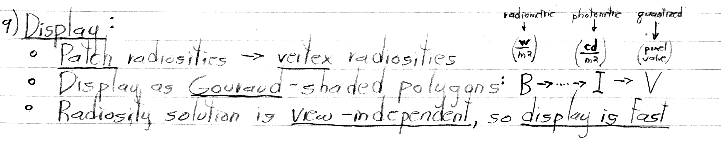 radiometric photometric quantized
9) Display:
• Patch radiosities → vertex radiosities (w/m²) (cd/m²) (pixel value)
• Display as Gouraud-shaded polygons: B →····→ I → V
• Radiosity solution is view-independent, so display is fast